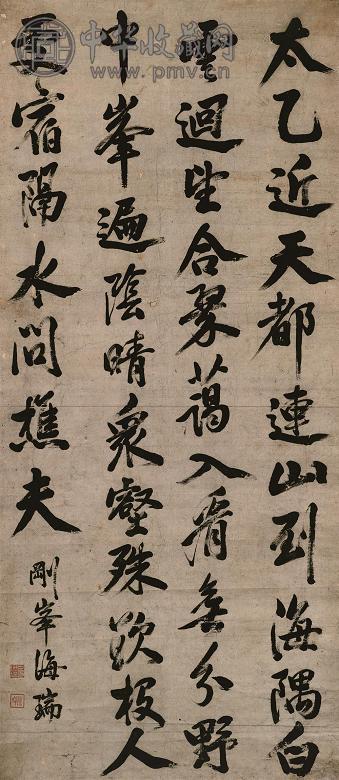 太乙近天都連山到海隅白
雲迴望合藹入看無分野
中峯遍陰晴衆壑殊欲投人
處宿隔水問樵夫
剛峯海瑞
中华收藏网
www.pmv.cn